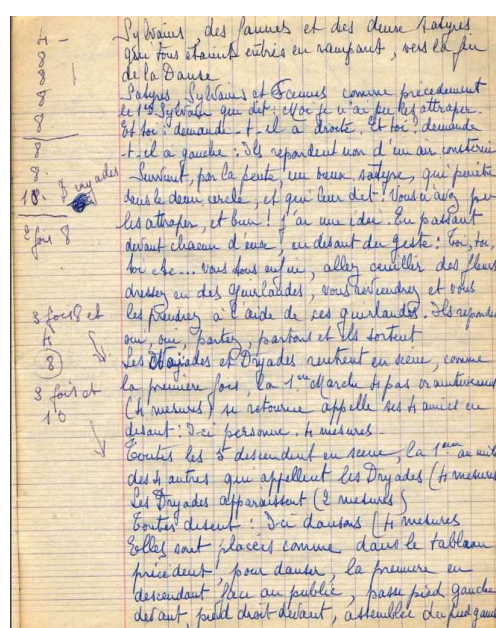 4 -
8
8
8
8
8
8.
10. Dryades
2 fois 8
3 fois et
4
8
3 fois et
10
Sylvains, des Faunes et des deux Satyres
que tous étaient entrés en rampant, vers la fin
de la Danse
Satyres, Sylvains et Faunes comme précedement
le 1er Sylvain qui dit: Moi je n'ai pu les attraper.
Et toi: demande-t-il à droite. Et toi? demande
-t-il a gauche: Ils repondent non d'un air consterné
Survient, par la pente, un vieux satyre, qui penètre
dans le demi cercle, et qui leur dit: Vous n'avez pu
les attraper, et bien! j'ai une idée. En passant
devant chacun d'eux, en disant du geste: Toi, toi,
toi etc... vous tous enfin, allez cueillir des fleurs
dressez en des guirlandes, vous reviendrez et vous
les prendrez a l'aide de ces guirlandes. Ils repondent
oui, oui, partez, partons et ils sortent
Les Naïades et Dryades rentrent en scène, comme
la première fois, la 1ère Marche 4 pas
(4 mesures) se retourne appelle ses 4 amies en
disant: Ici personne. 4 mesures.
Toutes les 5 descendent en scène, la 1ère au milieu
des 4 autres qui appellent les Dryades (4 mesures
Les Dryades apparaissent (2 mesures)
Toutes disent: Ici dansons (4 mesures
Elles sont placées comme dans le tableau
précédent, pour danser, la première en
descendant face au public, passe pied gauche
devant, pied droit devant, assemblée du pied gauche